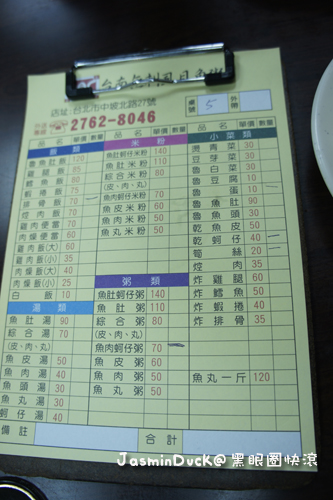 店址:台北市中坡北路27號
☎2762-8046
桌號 5 外帶
飯類
品名 單價 數量
魯魚肚飯 120
雞腿飯 85
鱈魚飯 80
蝦捲飯
排骨飯 70
焢肉飯
雞肉便當
肉燥便當 60
雞肉飯(大) 60
雞肉飯(小) 35
肉燥飯(大)
肉燥飯(小)
白飯 10
湯類
魚肚湯 90
綜合湯 70
(皮、肉、丸)
魚皮湯 50
魚肉湯 50
魚頭湯 30
魚丸湯 30
蚵仔湯
備註
米粉
品名 單價 數量
魚肚蚵仔米粉 140
魚肚米粉 110
綜合米粉 80
(皮、肉、丸)
魚肉蚵仔米粉 70
魚皮米粉 60
魚肉米粉 50
魚丸米粉 50
粥類
魚肚蚵仔粥 140
魚肚粥 110
綜合粥 80
(皮、肉、丸)
魚肉蚵仔粥 70
魚皮粥 60
魚肉粥 50
魚丸粥 50
合計
小菜類
品名 單價 數量
燙青菜 30
豆芽菜 30
魯白菜 30
魯豆腐 10
魯蛋 10
魯魚肚 90
魯魚頭 30
乾魚皮 50
乾蚵仔 40
筍絲 20
焢肉 35
炸雞腿 60
炸鱈魚 50
炸蝦捲 40
炸排骨 35
魚丸一斤 120
JasminDucK@黑眼圈快滾